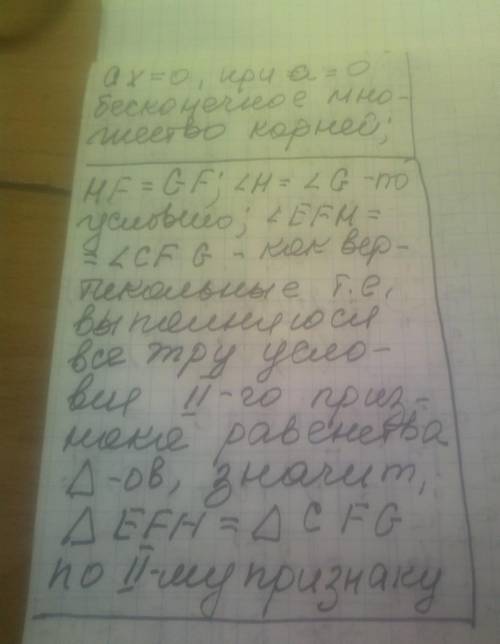 ax=0, при a=0
бесконечное мно-
жество корней;
HF=GF; ∠H=∠G-по
условию; ∠EFH=
=∠CFG - как вер-
тикальные т.е,
выполняюся
все тру усло-
вия II-го приз-
нака равенства
Δ-ов, значит,
ΔEFH=ΔCFG
по II-му признаку